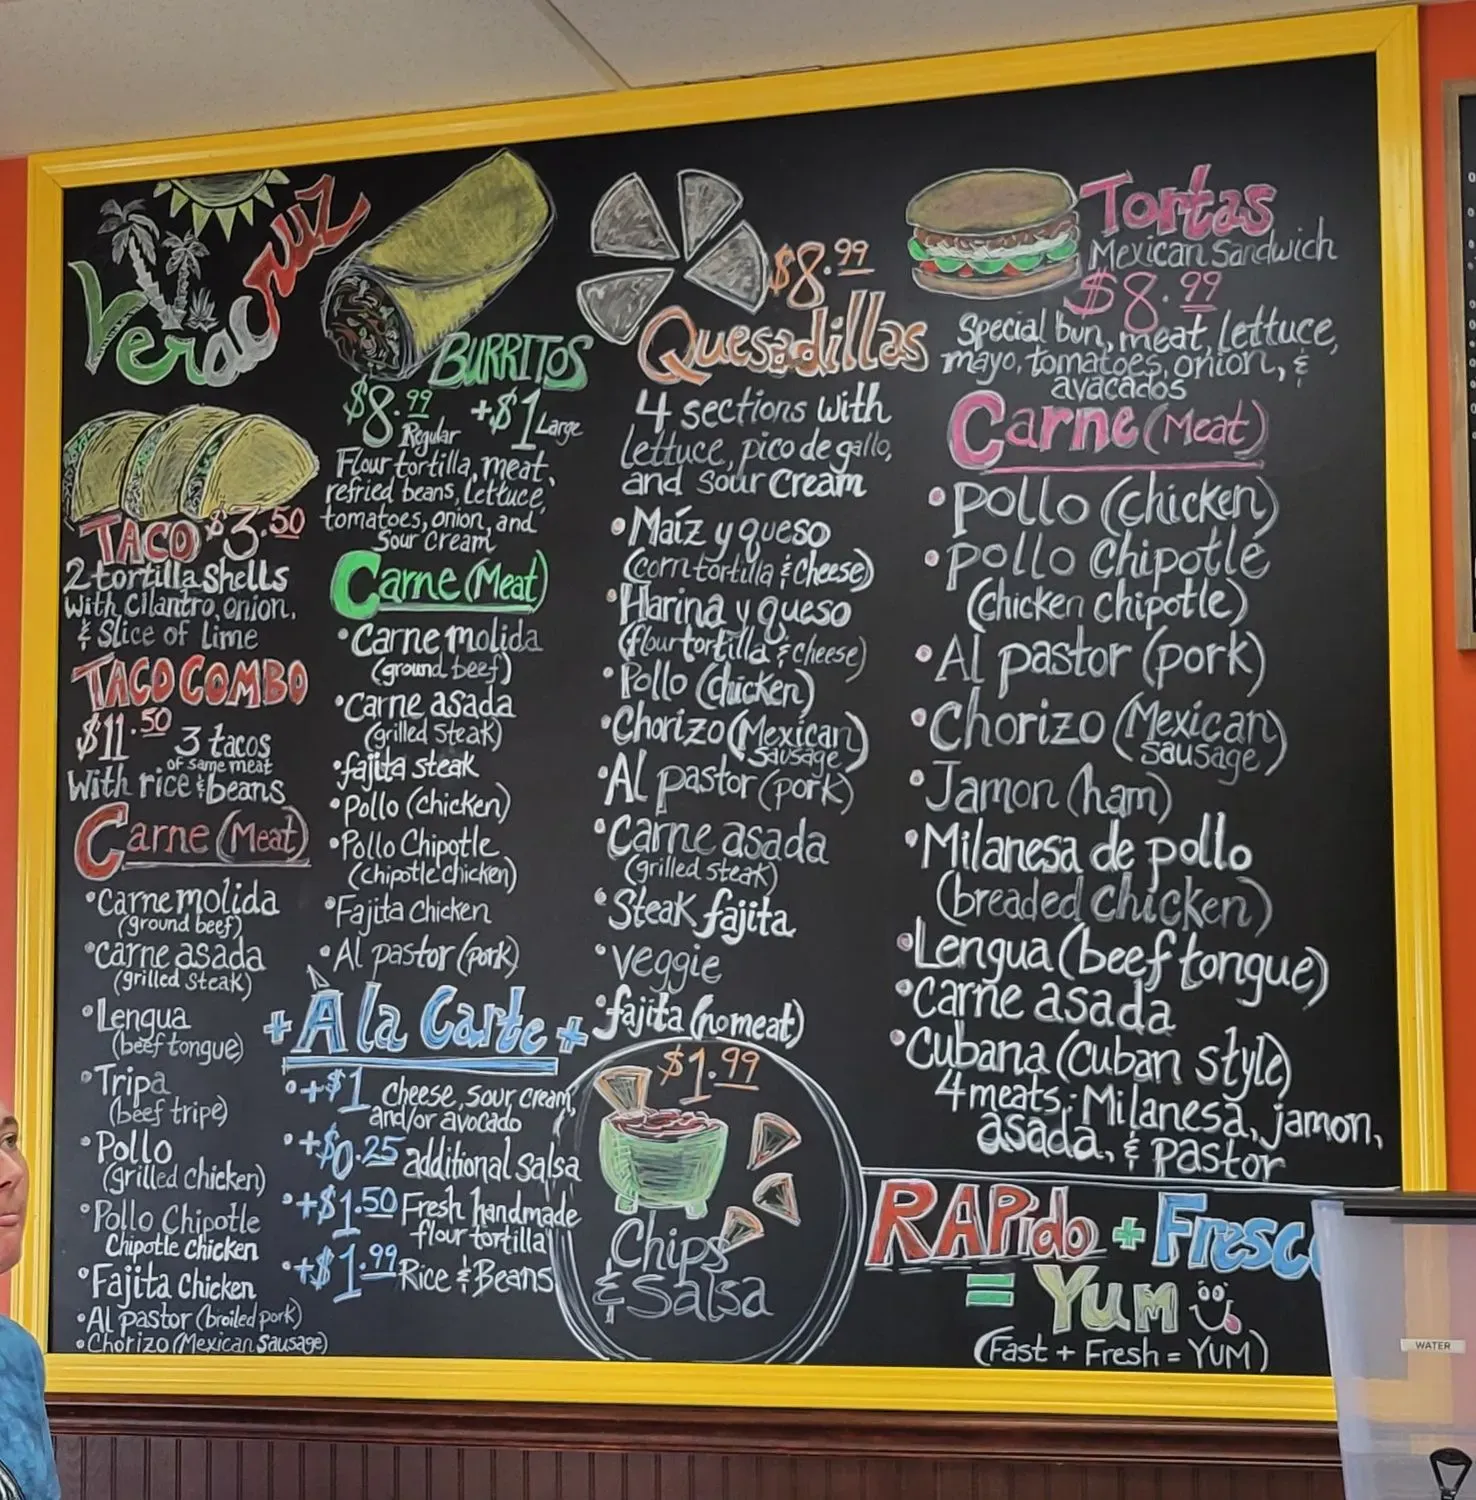 VeraCruz
TACO $3.50
2 tortilla shells
with cilantro, onion,
& Slice of Lime
TACO COMBO
$11.50 3 tacos
of same meat
With rice & beans
Carne (Meat)
•Carne molida
(ground beef)
•carne asada
(grilled steak)
•Lengua
(beef tongue)
•Tripa
(beef tripe)
•Pollo
(grilled chicken)
•Pollo Chipotle
Chipotle Chicken
•Fajita Chicken
•Al pastor (broiled pork)
•Chorizo (Mexican Sausage)
BURRITOS
$8.99 Regular +$1 Large
Flour tortilla, meat,
refried beans, Lettuce,
tomatoes, onion, and
Sour Cream
Carne (Meat)
•Carne molida
(ground beef)
•Carne asada
(grilled steak)
•fajita steak
•Pollo (chicken)
•Pollo Chipotle
(chipotle chicken)
•Fajita Chicken
•Al pastor (pork)
+ A la Carte +
•+$1 Cheese, sour cream,
and/or avocado
•+$0.25 additional Salsa
•+$1.50 Fresh handmade
flour tortilla
•+$1.99 Rice & Beans
$8.99
Quesadillas
4 sections with
lettuce, pico de gallo,
and sour cream
•Maíz y queso
(corn tortilla & cheese)
•Harina y queso
(flour tortilla & cheese)
•Pollo (chicken)
•Chorizo (Mexican
sausage)
•Al pastor (pork)
•Carne asada
(grilled steak)
•Steak fajita
•veggie
•fajita (no meat)
$1.99
Chips
& Salsa
Tortas
Mexican Sandwich
$8.99
Special bun, meat, lettuce,
mayo, tomatoes, onion, &
avacados
Carne (Meat)
•pollo (chicken)
•pollo Chipotle
(chicken chipotle)
•Al pastor (pork)
•Chorizo (Mexican
sausage)
•Jamon (ham)
•Milanesa de pollo
(breaded chicken)
•Lengua (beef tongue)
•Carne asada
•Cubana (Cuban style)
4 meats: Milanesa, jamon,
asada, & pastor
RAPido + Fresc
= YUM
(Fast + Fresh = YUM)
WATER